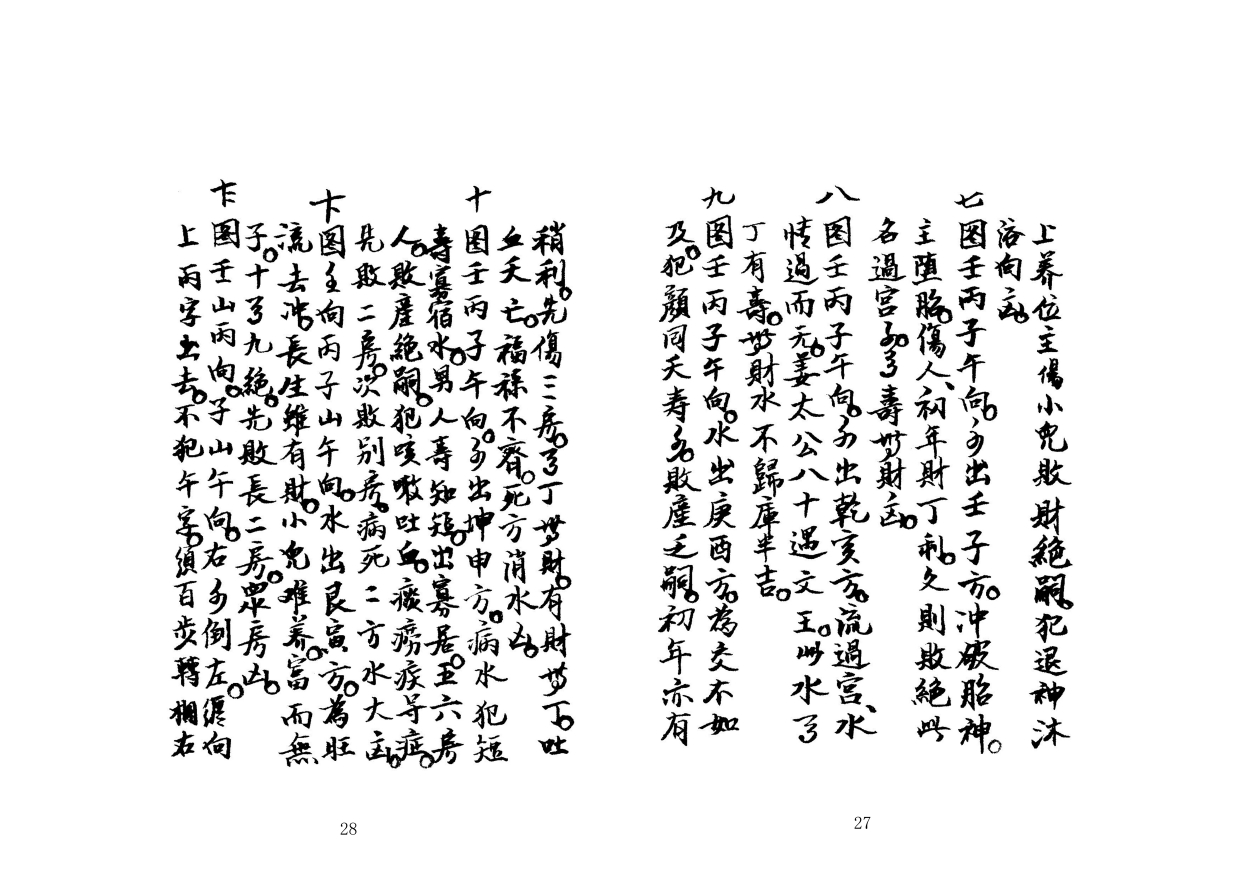 上养位主傷小兒敗財絕嗣。犯退神沐
浴向凶。
七图壬丙子午向。水出壬子方。冲破胎神。
主堕胎。傷人、初年財丁利。久則敗絕此
名過宮水。了壽無財凶。
八图壬丙子午向。水出乾亥方。流過宮、水
情過而无。姜太公八十遇文王。此水了
丁有壽。無財水不歸庫半吉。
九图壬丙子午向。水出庚酉方。為交不如
及。犯顏回夭寿水。敗産乏嗣。初年亦有
27
稍利。先傷三房。了丁無財。有財無丁。吐
血夭亡。福祿不齊。死方消水凶。
十图壬丙子午向。水出坤申方。病水犯短
壽寡宿水。男人壽知短。出寡居。五六房
人。敗産絕嗣。犯咳嗽吐血。痰癆疾等症。
先敗二房。次敗别房。病死二方水大凶。
图壬向丙子山午向。水出艮寅方。為旺
流去冲。長生雖有財。小兒难养。富而無
子。十了九絕。先敗長二房。眾房凶。
图壬山丙向。子山午向。右水倒左。從向
上丙字出去。不犯午字。須百步轉欄右
28